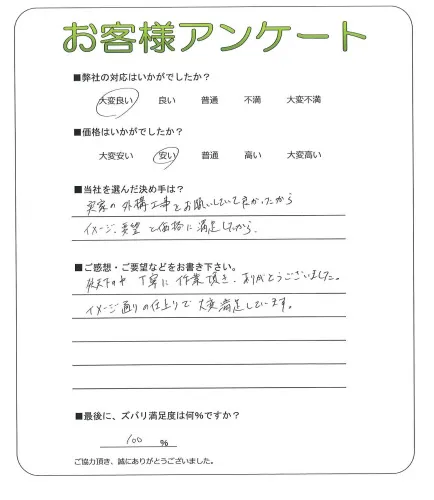 お客様アンケート
■弊社の対応はいかがでしたか？
大変良い 良い 普通 不満 大変不満
■価格はいかがでしたか？
大変安い 安い 普通 高い 大変高い
■当社を選んだ決め手は？
実家の外構工事をお願いしていて良かったから
イメージ、要望と価格に満足したから.
■ご感想・ご要望などをお書き下さい。
炎天下の中 丁寧に作業頂き、ありがとうございました。
イメージ通りの仕上りで大変満足しています。
■最後に、ズバリ満足度は何%ですか？
100 %
ご協力頂き、誠にありがとうございました。